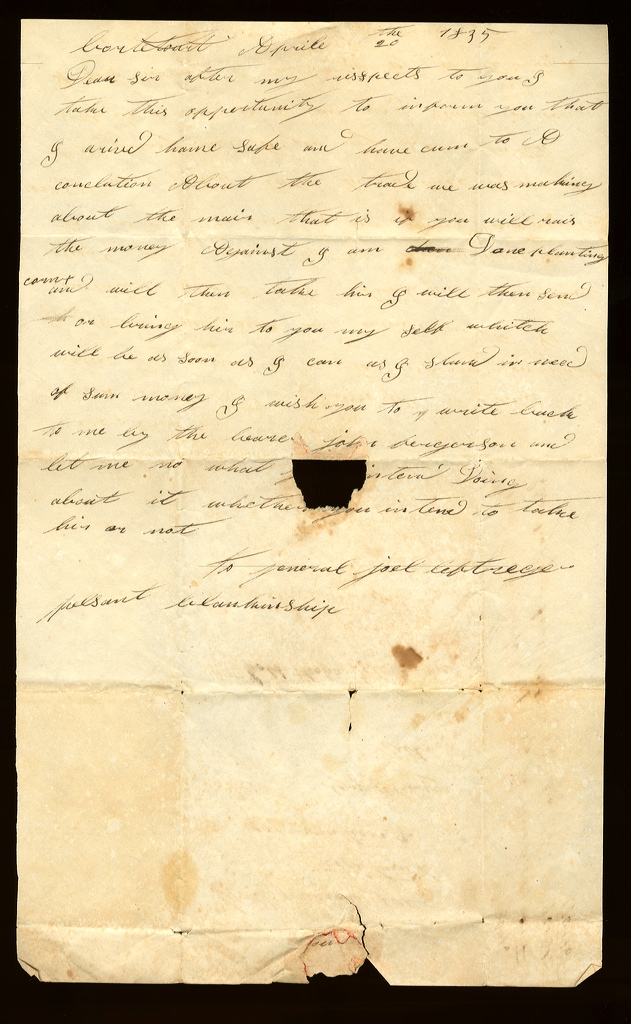 Bortetourt Aprile the 20 1835
Dear sir after my respects to you I
take this opportunity to inform you that
I arived hame safe and have cum to A
conclution About the trade we was making
about the man that is if you will rais
the money Against I am Done planting
corn & will then take his I will then send
or bring him to you my self whitch
will be as soon as I can as I stand in need
of sum money I wish you to write back
to me by the bearer john bergerson and
let me no what intend Doing
about it whether you intend to take
him or not
to jeneral joel leftrege
plesant blankinship